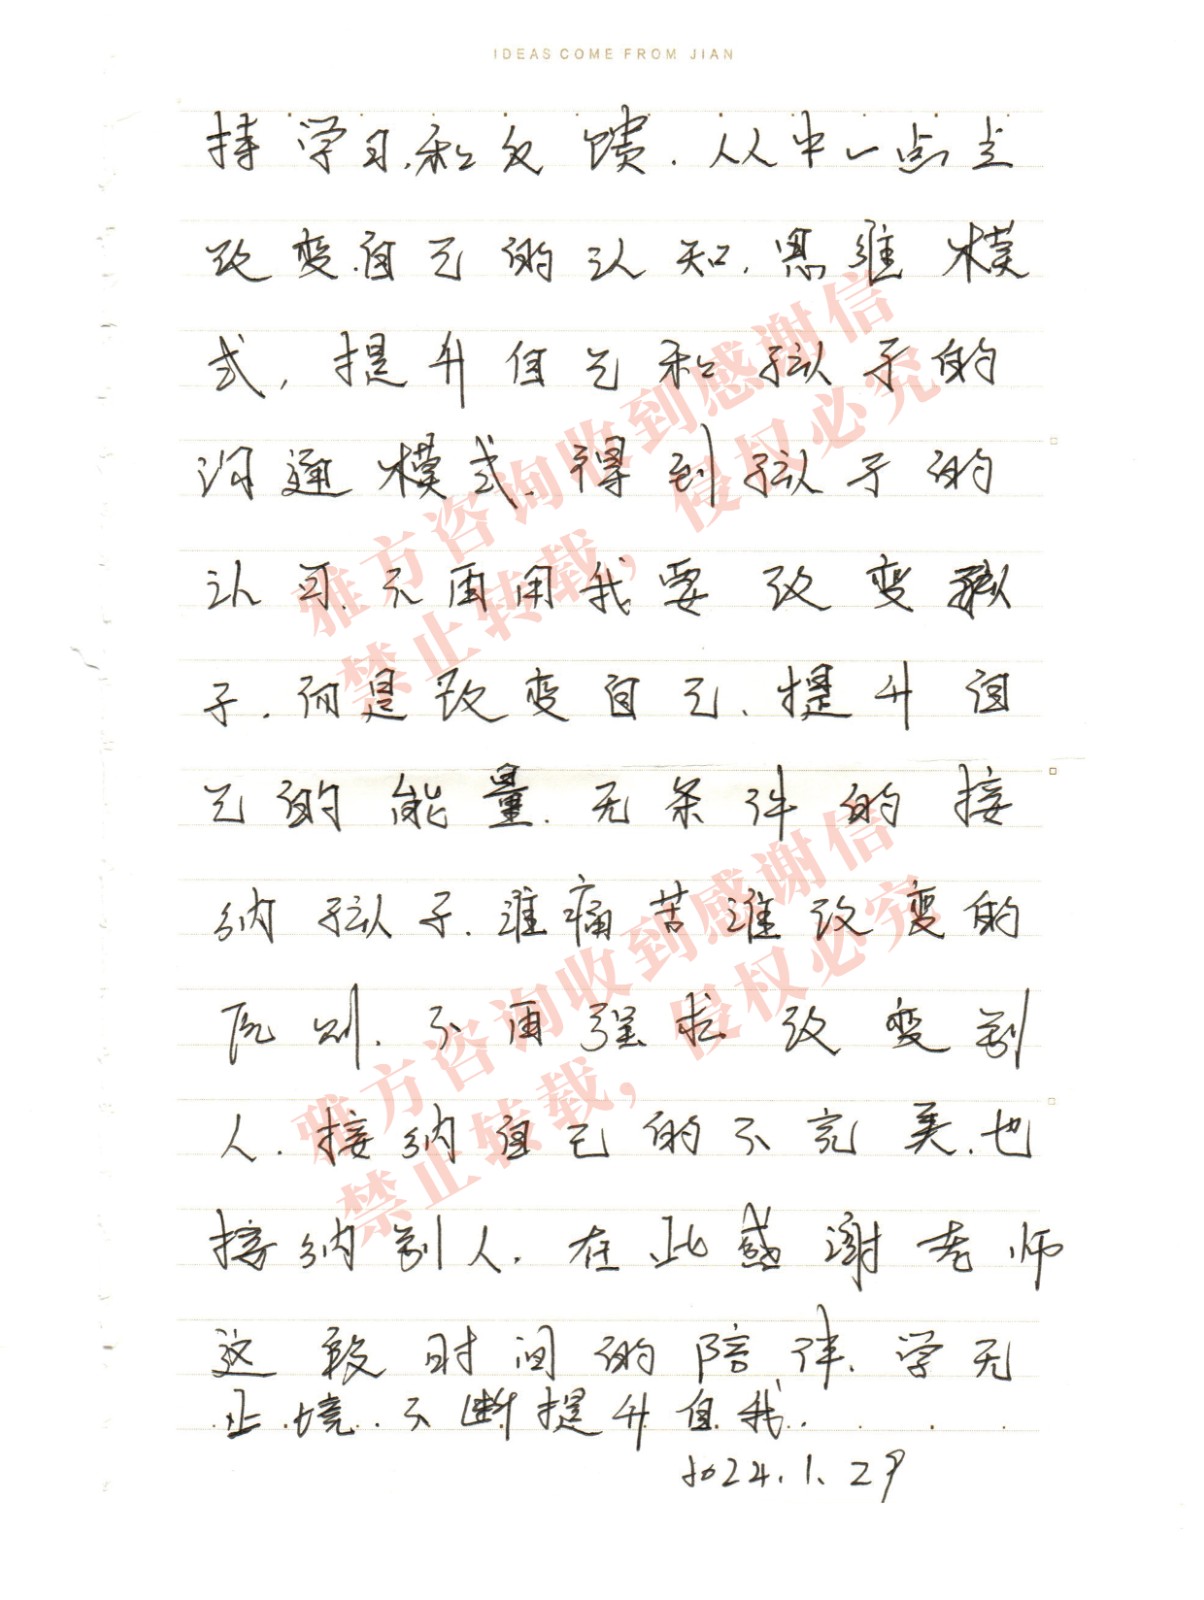 IDEAS COME FROM JIAN
持学习和反馈.从中一点点
改变自己的认知.思维模
式,提升自己和孩子的
沟通模式.得到孩子的
认可.不再用我要改变孩
子.而是改变自己.提升自
己的能量.无条件的接
纳孩子.谁痛苦谁改变的
原则.不再强求改变别
人.接纳自己的不完美.也
接纳别人.在此感谢老师
这段时间的陪伴.学无
止境.不断提升自我.
2024.1.29
雅方咨询收到感谢信
禁止转载,侵权必究
雅方咨询收到感谢信
禁止转载,侵权必究